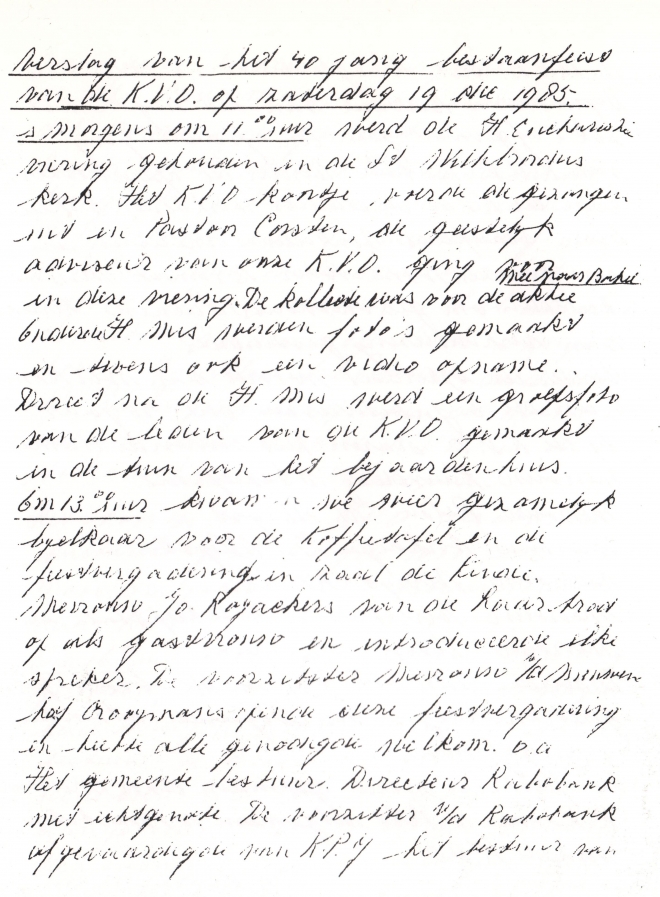 Verslag van het 40 jarig bestaansfeest
van de K.V.O. op zaterdag 19 okt 1985.
s morgens om 11.00 uur werd de H. Eucharistie
viering gehouden in de St Willibrordus
kerk. Het K.V.O koortje, voerde de gezangen
uit en Pastoor Corsten, de geestelijk
adviseur van onze K.V.O. ging voor
in deze viering. De kollecte was voor de aktie
Onder de H. Mis werden foto's gemaakt
en tevens ook een video opname.
Direct na de H. Mis werd een groepsfoto
van de leden van de K.V.O. gemaakt
in de tuin van het bejaardenhuis.
Om 13.00 uur kwamen we weer gezamelijk
byelkaar voor de Koffietafel en de
feestvergadering in zaal de Eindie.
Mevrouw Jo Royackers van de Laar trad
op als gastvrouw en introduceerde elke
spreker. De voorzitster Mevrouw v/d Nieuwen
hof Crooymans opende deze feestvergadering
en heette alle genodigde welkom. o.a
Het gemeente bestuur. Directeur Rabobank
met echtgenote. De voorzitter v/d Rabobank
afgevaardigde van K.P.J het bestuur van